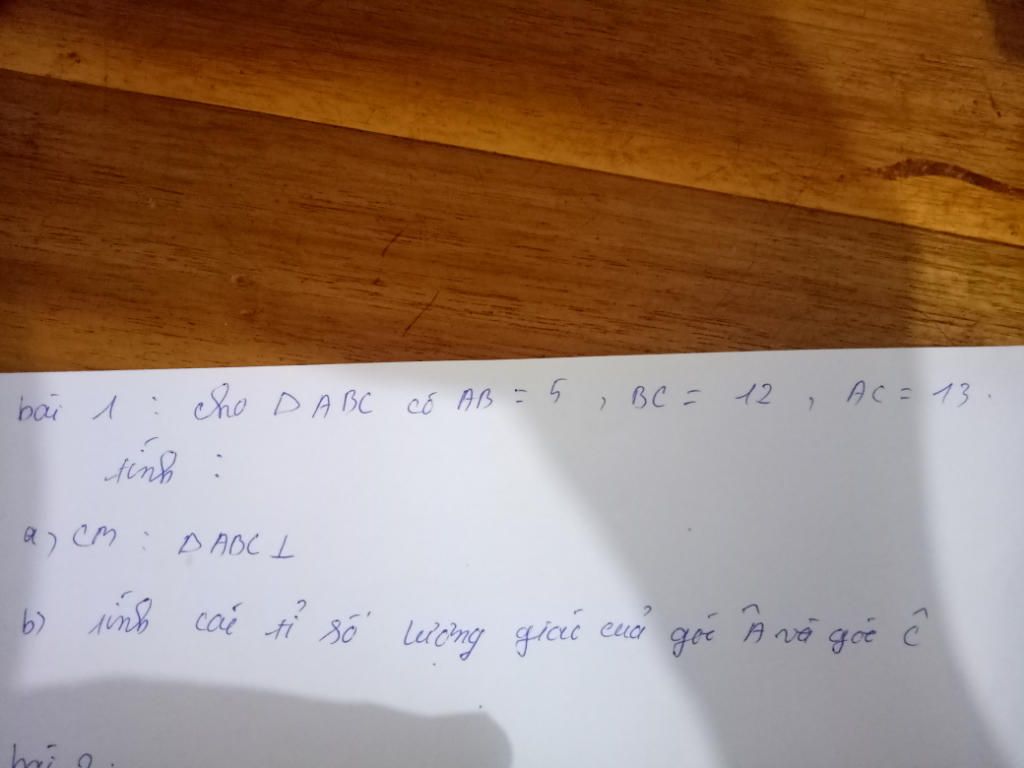 bài 1 : cho Δ ABC có AB = 5 , BC = 12 , AC = 13.
tính :
a, CM : Δ ABC ⊥
b) tính các tỉ số lượng giác của góc Â và góc Ĉ
bài 2 :